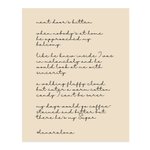 next door's kitten
when nobody's at home
he approached my
balcony
like he knew inside I was
in melancholy and he
would look at me with
sincerity
a walking fluffy cloud
but inter a worn cotton
candy I can't be surer
my days would go coffee
stained and bitter but
there he's my sugar